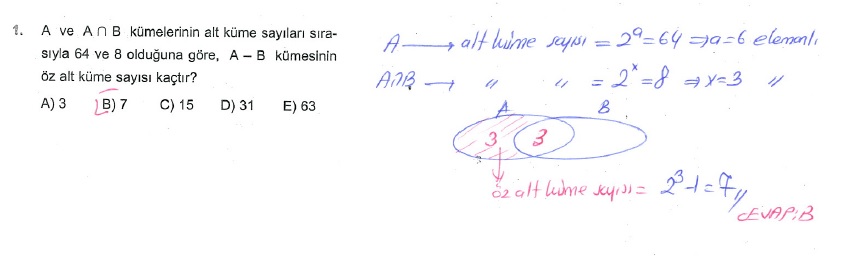 1. A ve A ∩ B kümelerinin alt küme sayıları sıra-
sıyla 64 ve 8 olduğuna göre, A – B kümesinin
öz alt küme sayısı kaçtır?
A) 3 B) 7 C) 15 D) 31 E) 63
A → alt küme sayısı = 2^a = 64 ⇒ a = 6 elemanlı
A∩B → " " = 2^x = 8 ⇒ x = 3 "
A B
3 3
öz alt küme sayısı = 2^3 - 1 = 7 //
CEVAP: B